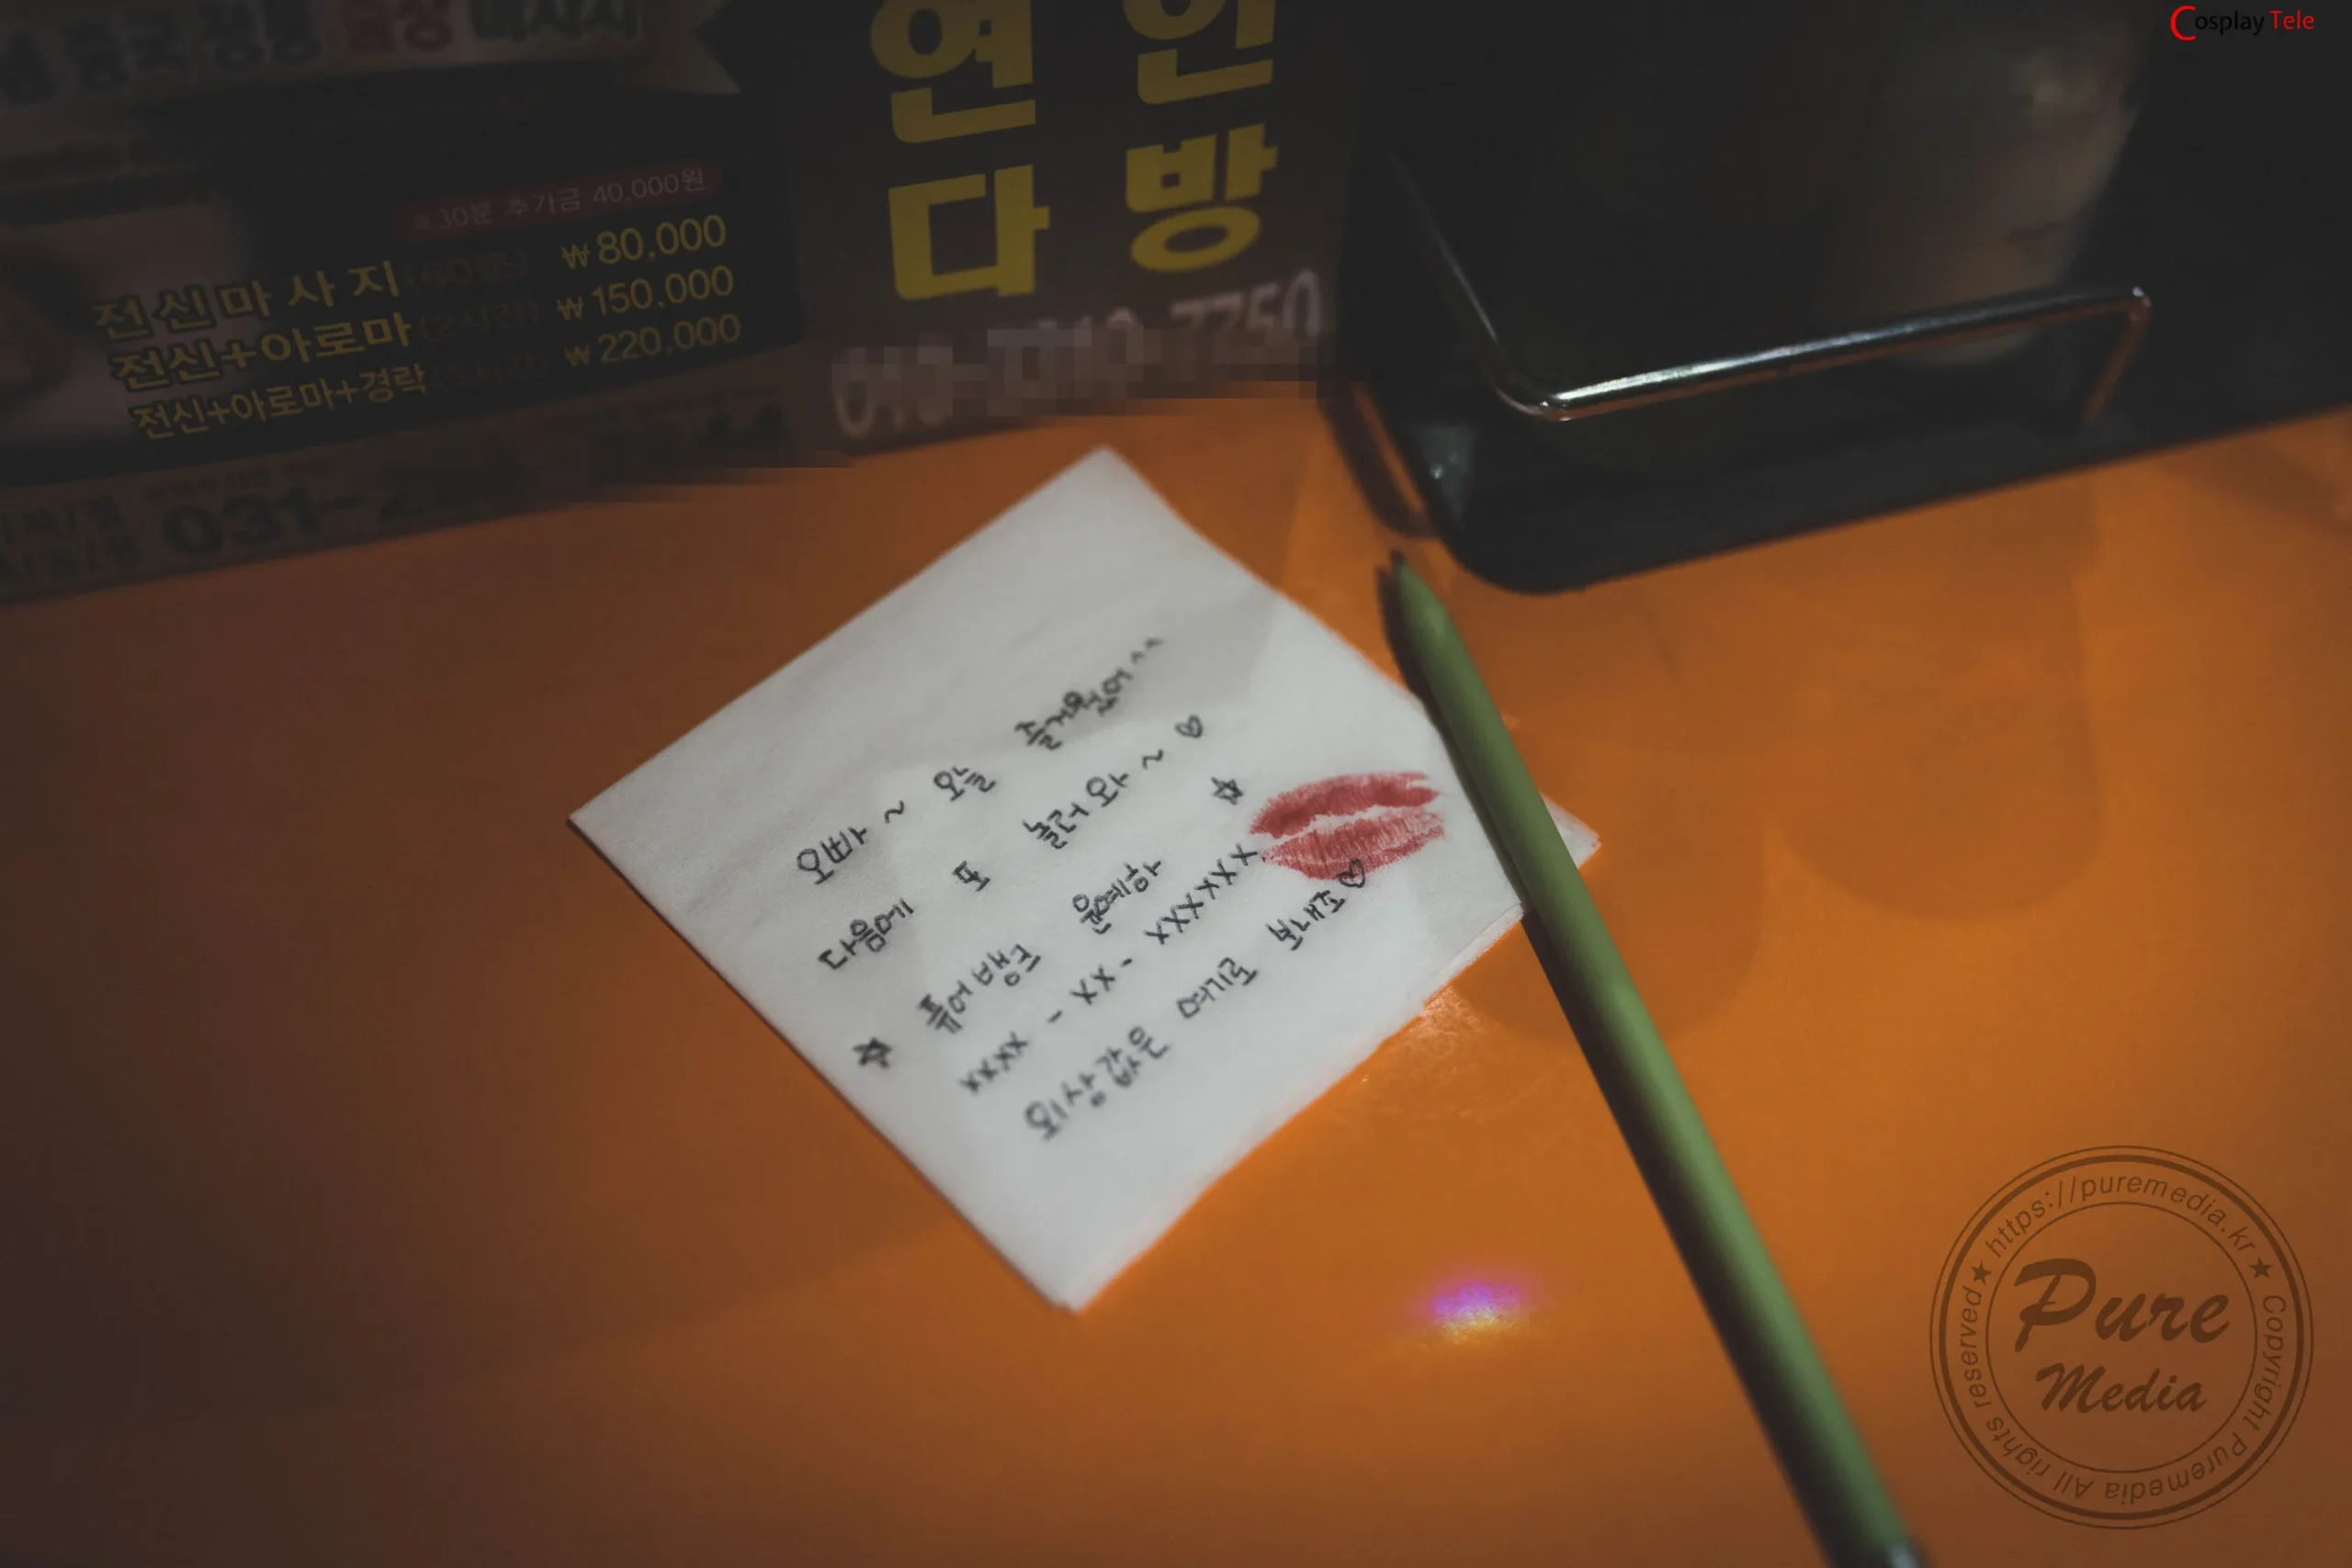 Cosplay Tele
연인
다방
※30분 추가금 40,000원
전신마사지(60분) ₩80,000
전신+아로마(2시간) ₩150,000
전신+아로마+경락 ₩220,000
031-
오빠~ 오늘 즐거웠어^^
다음에 또 놀러와~♡
☆ 퓨어뱅크 윤예하 ☆
xxxx - xx - xxxxxx
외상값은 여기로 보내죠♡
Pure
Media
https://puremedia.kr ★ Copyright Puremedia All rights reserved ★